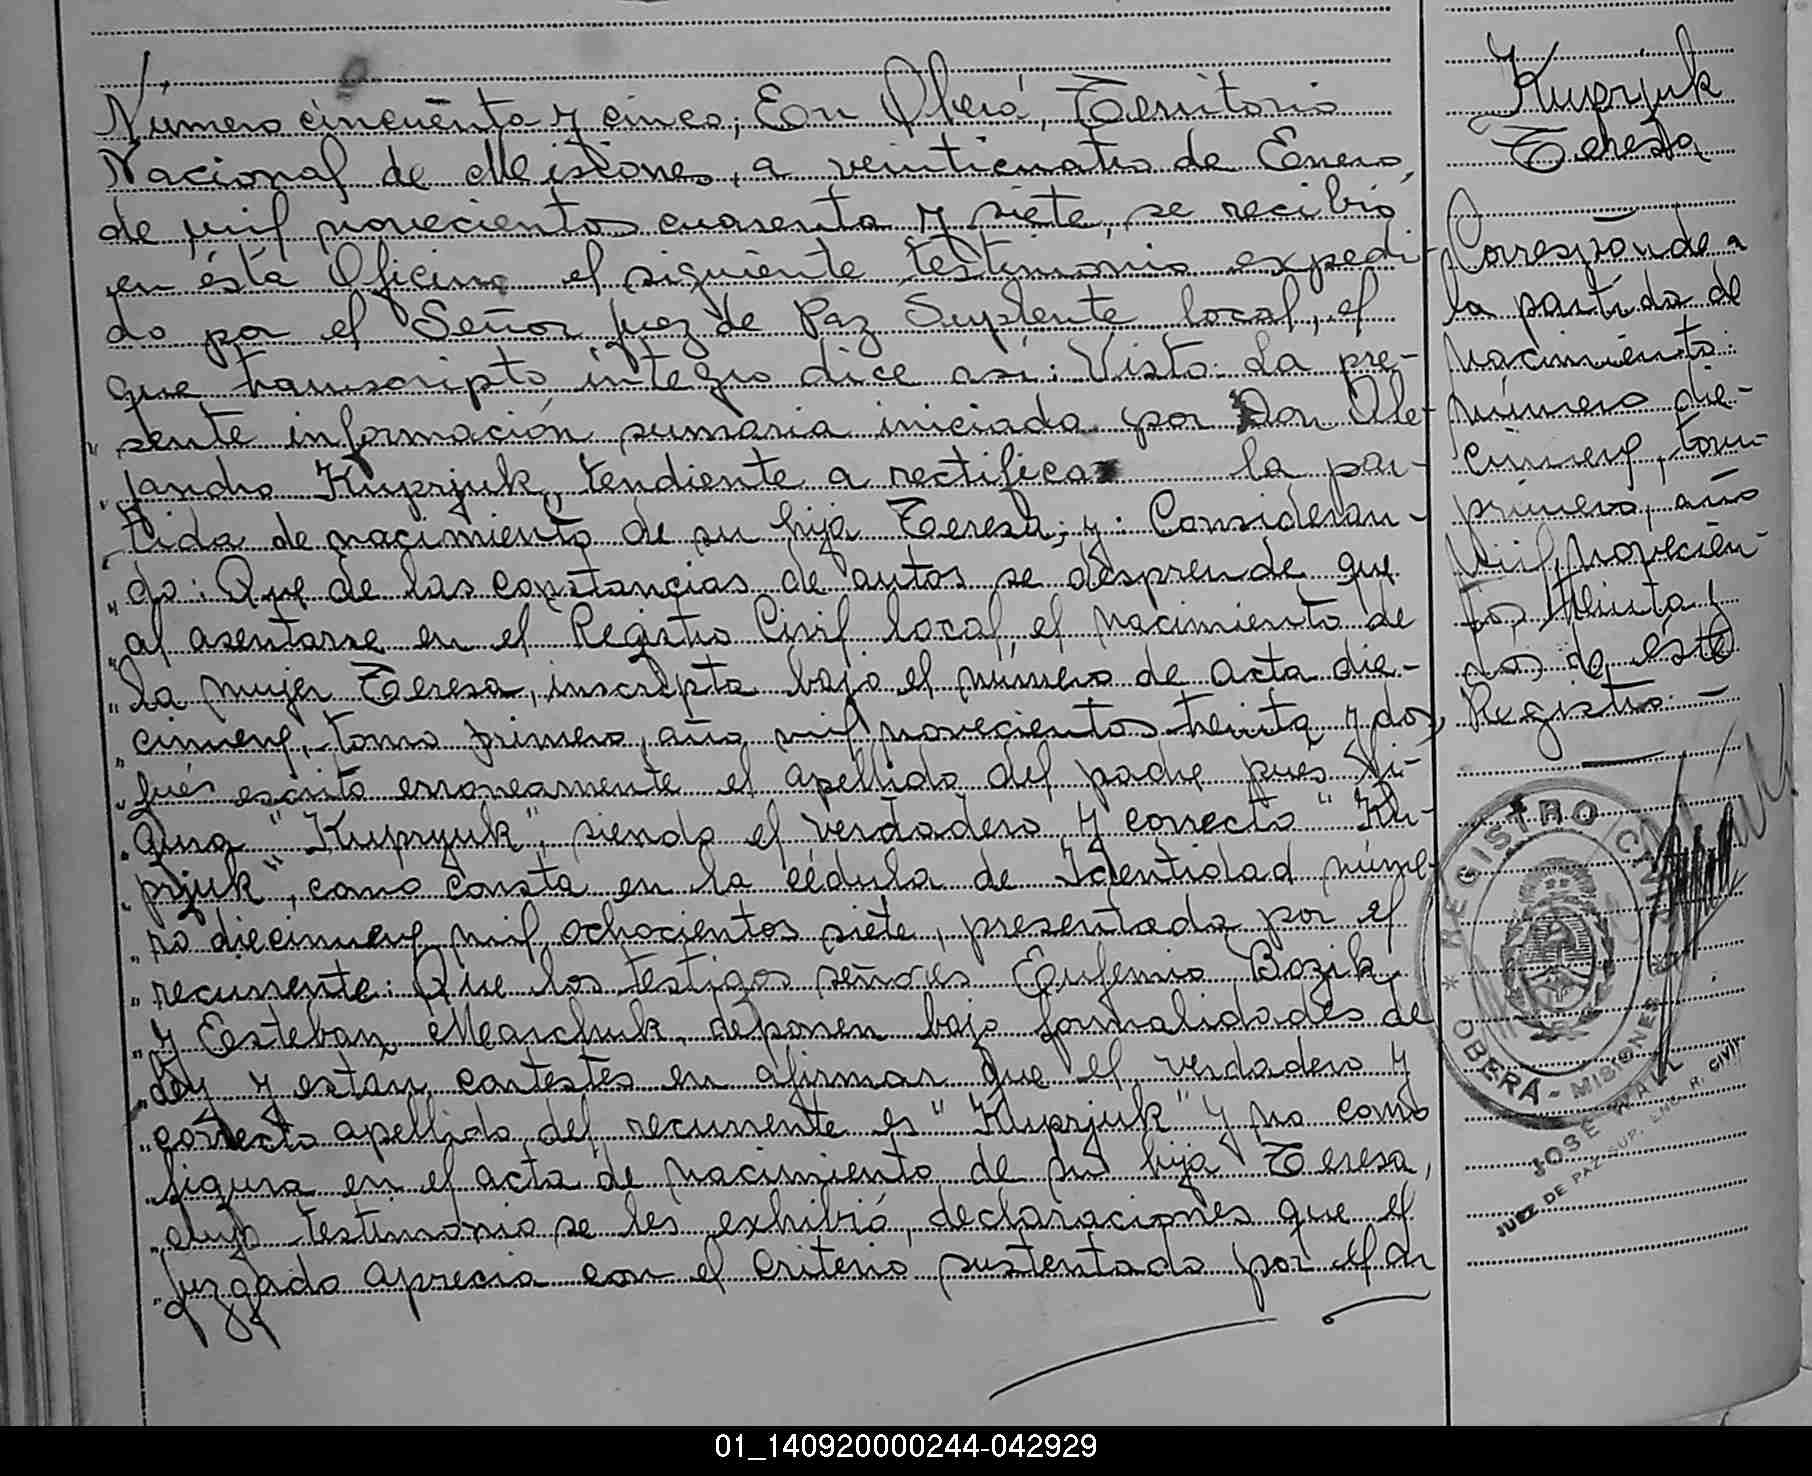 Número cincuenta y cinco; En Oberá, Territorio
Nacional de Misiones, a veinticuatro de Enero
de mil novecientos cuarenta y siete, se recibió
en ésta Oficina el siguiente testimonio expedi-
do por el Señor Juez de Paz Suplente local, el
que transcripto integro dice así: Visto: La pre-
" sente información sumaria iniciada por Don Ale-
" jandro Kuprjuk, tendiente a rectificar la par-
" tida de nacimiento de su hija Teresa; y: Consideran-
" do: Que de las constancias de autos se desprende que
" al asentarse en el Registro Civil local el nacimiento de
" la mujer Teresa, inscripta bajo el número de acta die-
" cinueve, tomo primero, año mil novecientos treinta y dos,
" fués escrito erroneamente el apellido del padre pues fi-
" gura "Kupryuk", siendo el verdadero y correcto "Ku-
" prjuk", como consta en la cédula de Identidad núme-
" ro diecinueve mil ochocientos siete, presentada por el
" recurrente: Que los testigos señores Eufemio Bozik
" y Esteban Marchuk, deponen bajo formalidades de
" ley y estan contestes en afirmar que el verdadero y
" correcto apellido del recurrente es "Kuprjuk" y no como
" figura en el acta de nacimiento de su hija Teresa,
" cuyo testimonio se les exhibió, declaraciones que el
" juzgado aprecia con el criterio sustentado por el ar
Kuprjuk
Teresa
Corresponde a
la partida de
nacimiento:
número die-
cinueve, tomo
primero, año
mil novecien-
tos treinta y
dos de éste
Registro.—
REGISTRO CIVIL
* OBERÁ - MISIONES *
JOSÉ WALL
JUEZ DE PAZ SUP. ENC. R. CIVIL
01_140920000244-042929